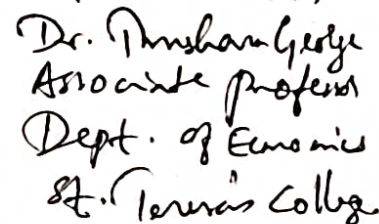 Dr. Thushara George
Associate Professor
Dept. of Economics
St. Teresa's College